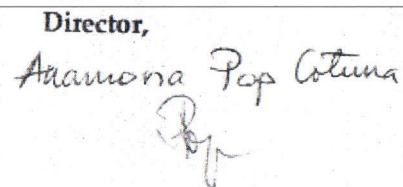 Director,
Anamoria Pop Cotuna
Pop